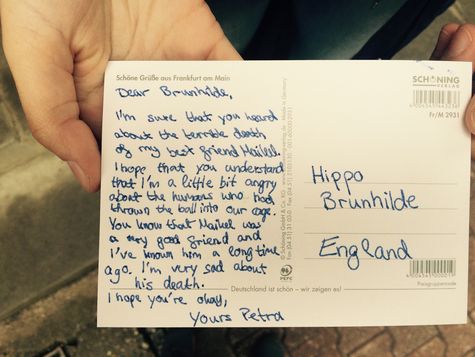 Schöne Grüße aus Frankfurt am Main
Dear Brunhilde,
I'm sure that you heard
about the terrible death
of my best friend Maikel.
I hope that you understand
that I'm a little bit angry
about the humans who had
thrown the ball into our cage.
You know that Maikel was
a very good friend and
I've known him a long time
ago. I'm very sad about
his death.
I hope you're okay,
Yours Petra
Deutschland ist schön – wir zeigen es!
SCHÖNING
VERLAG
Fr/M 2931
Hippo
Brunhilde
England